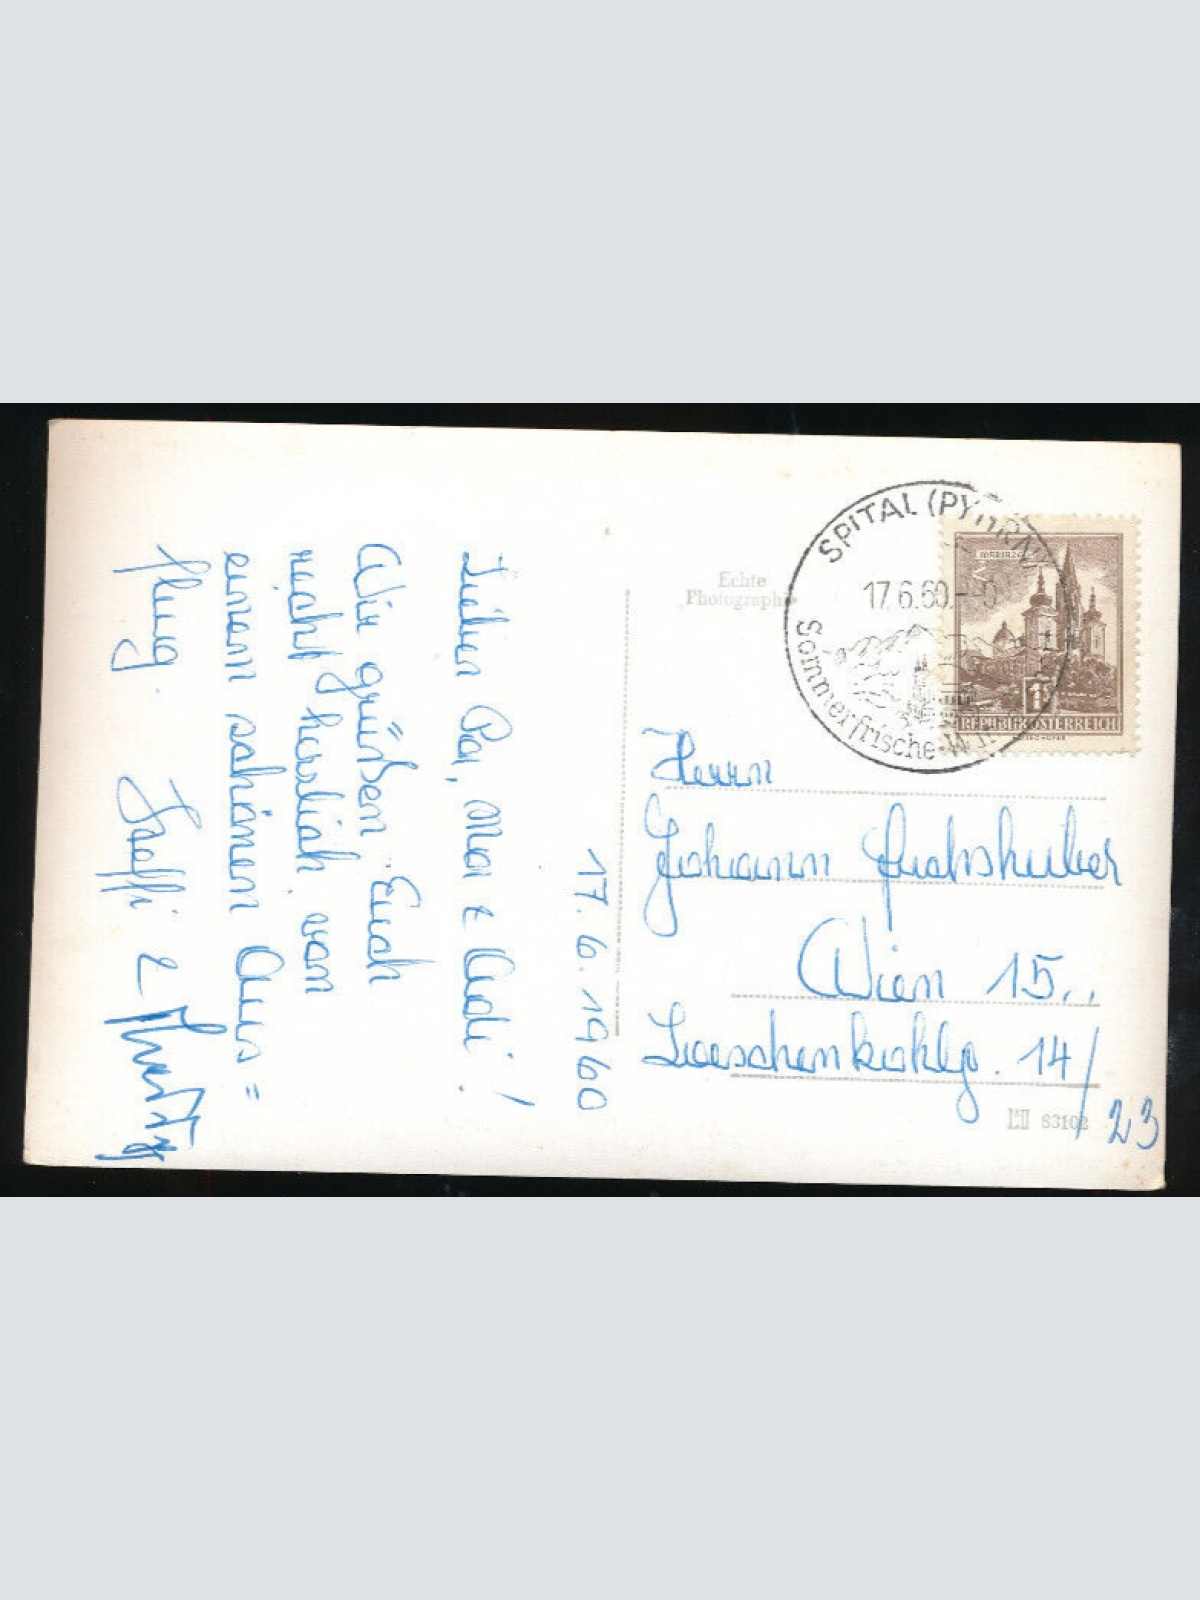 17.6.1960
Lieber Pa, Ma & Adi!
Wir grüßen Euch
recht herzlich von
einem schönen Aus=
flug. Steffi &
Echte
Photographie
SPITAL (PYHRN)
17.6.60.-
Sommerfrische-
MARIAZELL
1
REPUBLIK ÖSTERREICH
Herrn
Johann Fuchshuber
Wien 15.,
Loeschenkohlg. 14/
23
83102